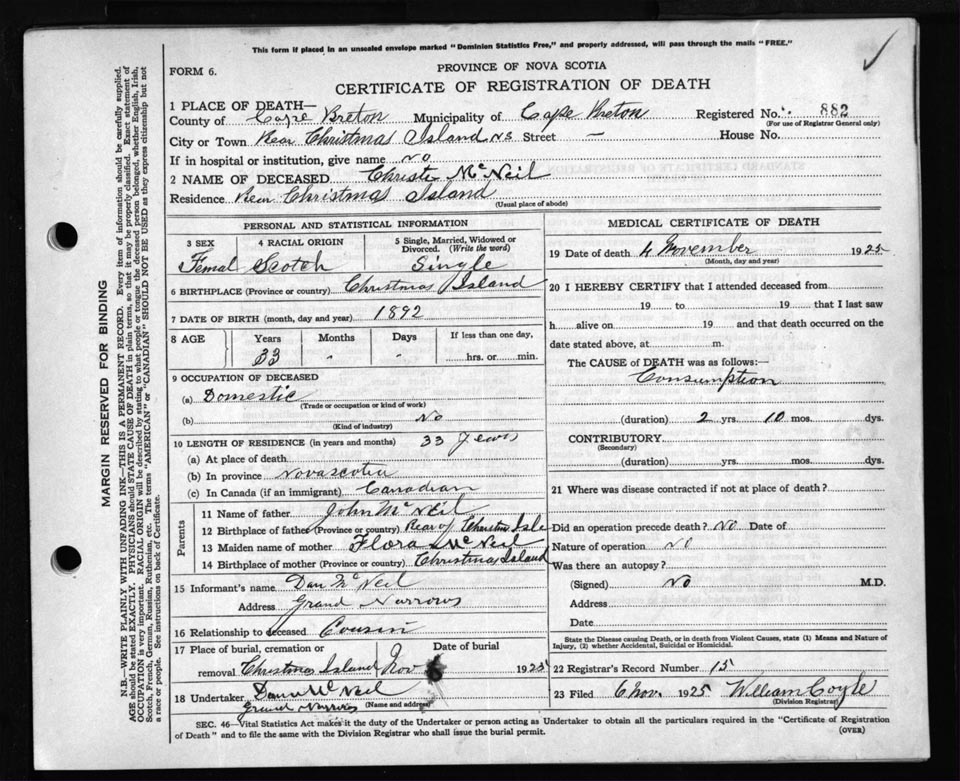 This form if placed in an unsealed envelope marked "Dominion Statistics Free," and properly addressed, will pass through the mails "FREE."
FORM 6.
PROVINCE OF NOVA SCOTIA
CERTIFICATE OF REGISTRATION OF DEATH
1 PLACE OF DEATH—
County of Cape Breton Municipality of Cape Breton Registered No. 882
(For use of Registrar General only)
City or Town Rear Christmas Island NS Street — House No.
If in hospital or institution, give name no
2 NAME OF DECEASED Christe McNeil
Residence Rear Christmas Island
(Usual place of abode)
PERSONAL AND STATISTICAL INFORMATION
3 SEX 4 RACIAL ORIGIN 5 Single, Married, Widowed or Divorced. (Write the word)
Femal Scotch Single
6 BIRTHPLACE (Province or country) Christmas Island
7 DATE OF BIRTH (month, day and year) 1892
8 AGE Years Months Days If less than one day,
33 " " hrs. or min.
9 OCCUPATION OF DECEASED
(a) Domestic
(Trade or occupation or kind of work)
(b) No
(Kind of industry)
10 LENGTH OF RESIDENCE (in years and months) 33 years
(a) At place of death
(b) In province Novascotia
(c) In Canada (if an immigrant) Canadian
Parents
11 Name of father John McNeil
12 Birthplace of father (Province or country) Rear of Christms Isle
13 Maiden name of mother Flora McNeil
14 Birthplace of mother (Province or country) Christmas Island
15 Informant's name Dan McNeil
Address Grand Narrows
16 Relationship to deceased Cousin
17 Place of burial, cremation or removal Date of burial
Christmas Island Nov 1925
18 Undertaker McNeil
Grand Narrows (Name and address)
MEDICAL CERTIFICATE OF DEATH
19 Date of death 4 November 1925
(Month, day and year)
20 I HEREBY CERTIFY that I attended deceased from
19 to 19 that I last saw
h alive on 19 and that death occurred on the
date stated above, at m.
The CAUSE of DEATH was as follows:—
Consumption
(duration) 2 yrs. 10 mos. dys.
CONTRIBUTORY
(Secondary)
(duration) yrs. mos. dys.
21 Where was disease contracted if not at place of death?
Did an operation precede death? No Date of
Nature of operation No
Was there an autopsy?
(Signed) No M.D.
Address
Date
State the Disease causing Death, or in death from Violent Causes, state (1) Means and Nature of
Injury, (2) whether Accidental, Suicidal or Homicidal.
22 Registrar's Record Number 15
23 Filed 6 Nov. 1925 William Coyle
(Division Registrar)
SEC. 46—Vital Statistics Act makes it the duty of the Undertaker or person acting as Undertaker to obtain all the particulars required in the "Certificate of Registration
of Death" and to file the same with the Division Registrar who shall issue the burial permit.
(OVER)
MARGIN RESERVED FOR BINDING
N.B.—WRITE PLAINLY WITH UNFADING INK—THIS IS A PERMANENT RECORD. Every item of information should be carefully supplied.
AGE should be stated EXACTLY. PHYSICIANS should STATE CAUSE OF DEATH in plain terms, so that it may be properly classified. Exact statement of
OCCUPATION is very important. RACIAL ORIGIN will be described by stating to what people or tongue the deceased person belonged, whether English, Irish,
Scotch, French, German, Russian, Ruthenian, etc. The terms "AMERICAN" or "CANADIAN" SHOULD NOT BE USED as they express citizenship but not
a race or people. See instructions on back of Certificate.